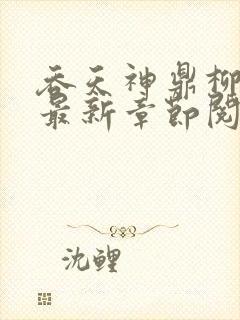 吞天神鼎柳
最新章节阅
沈鲤